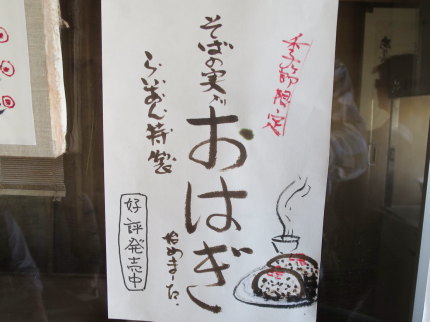 季節限定
そばの実入
おはぎ
はじめました。
らいおん特製
好評発売中